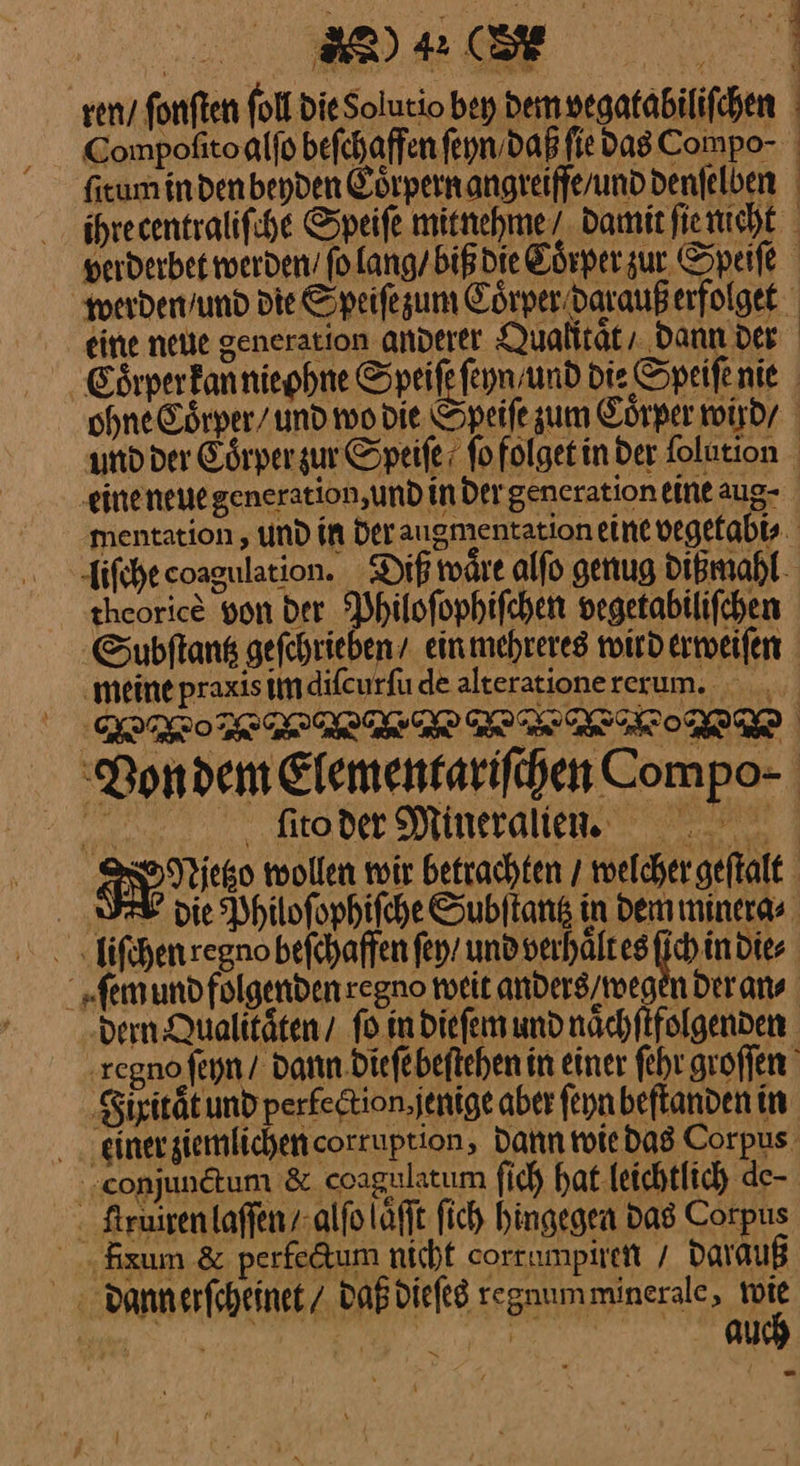 ) 42 (
ren/ ſonſten ſoll die Solutio bey dem vegatabiliſchen
Compoſito alſo beſchaffen ſeyn/daß ſie das Compo-
ſitum in den beyden Coͤrpern angreiffe/und denſelben
ihre centraliſche Speiſe mitnehme / damit ſie nicht
verderbet werden/ ſo lang/ biß die Coͤrper zur Speiſe
werden/und die Speiſe zum Coͤrper/darauß erfolget
eine neue generation anderer Qualitaͤt / dann der
Coͤrper kan nie ohne Speiſe ſeyn/und die Speiſe nie
ohne Coͤrper/ und wo die Speiſe zum Coͤrper wird/
und der Coͤrper zur Speiſe / ſo folget in der ſolution
eine neue generation,und in der generation eine aug-
mentation , und in der augmentation eine vegetabi-
liſche coagulation. Diß waͤre alſo genug dißmahl
theoricè von der Philoſophiſchen vegetabiliſchen
Subſtantz geſchrieben / ein mehreres wird erweiſen
meine praxis im diſcurſu de alteratione rerum.
Von dem Elementariſchen Compo-
ſito der Mineralien.
ANjetzo wollen wir betrachten / welcher geſtalt
die Philoſophiſche Subſtantz in dem minera-
liſchen regno beſchaffen ſey/ und verhaͤlt es ſich in die-
ſem und folgenden regno weit anders/wegen der an-
dern Qualitaͤten / ſo in dieſem und naͤchſtfolgenden
regno ſeyn / dann dieſe beſtehen in einer ſehr groſſen
Fixitaͤt und perfection,jenige aber ſeyn beſtanden in
einer ziemlichen corruption, dann wie das Corpus
conjunctum & coagulatum ſich hat leichtlich de-
ſtruiren laſſen / alſo laͤſſt ſich hingegen das Corpus
fixum & perfectum nicht corrumpiren / darauß
dann erſcheinet / daß dieſes regnum minerale, wie
auch